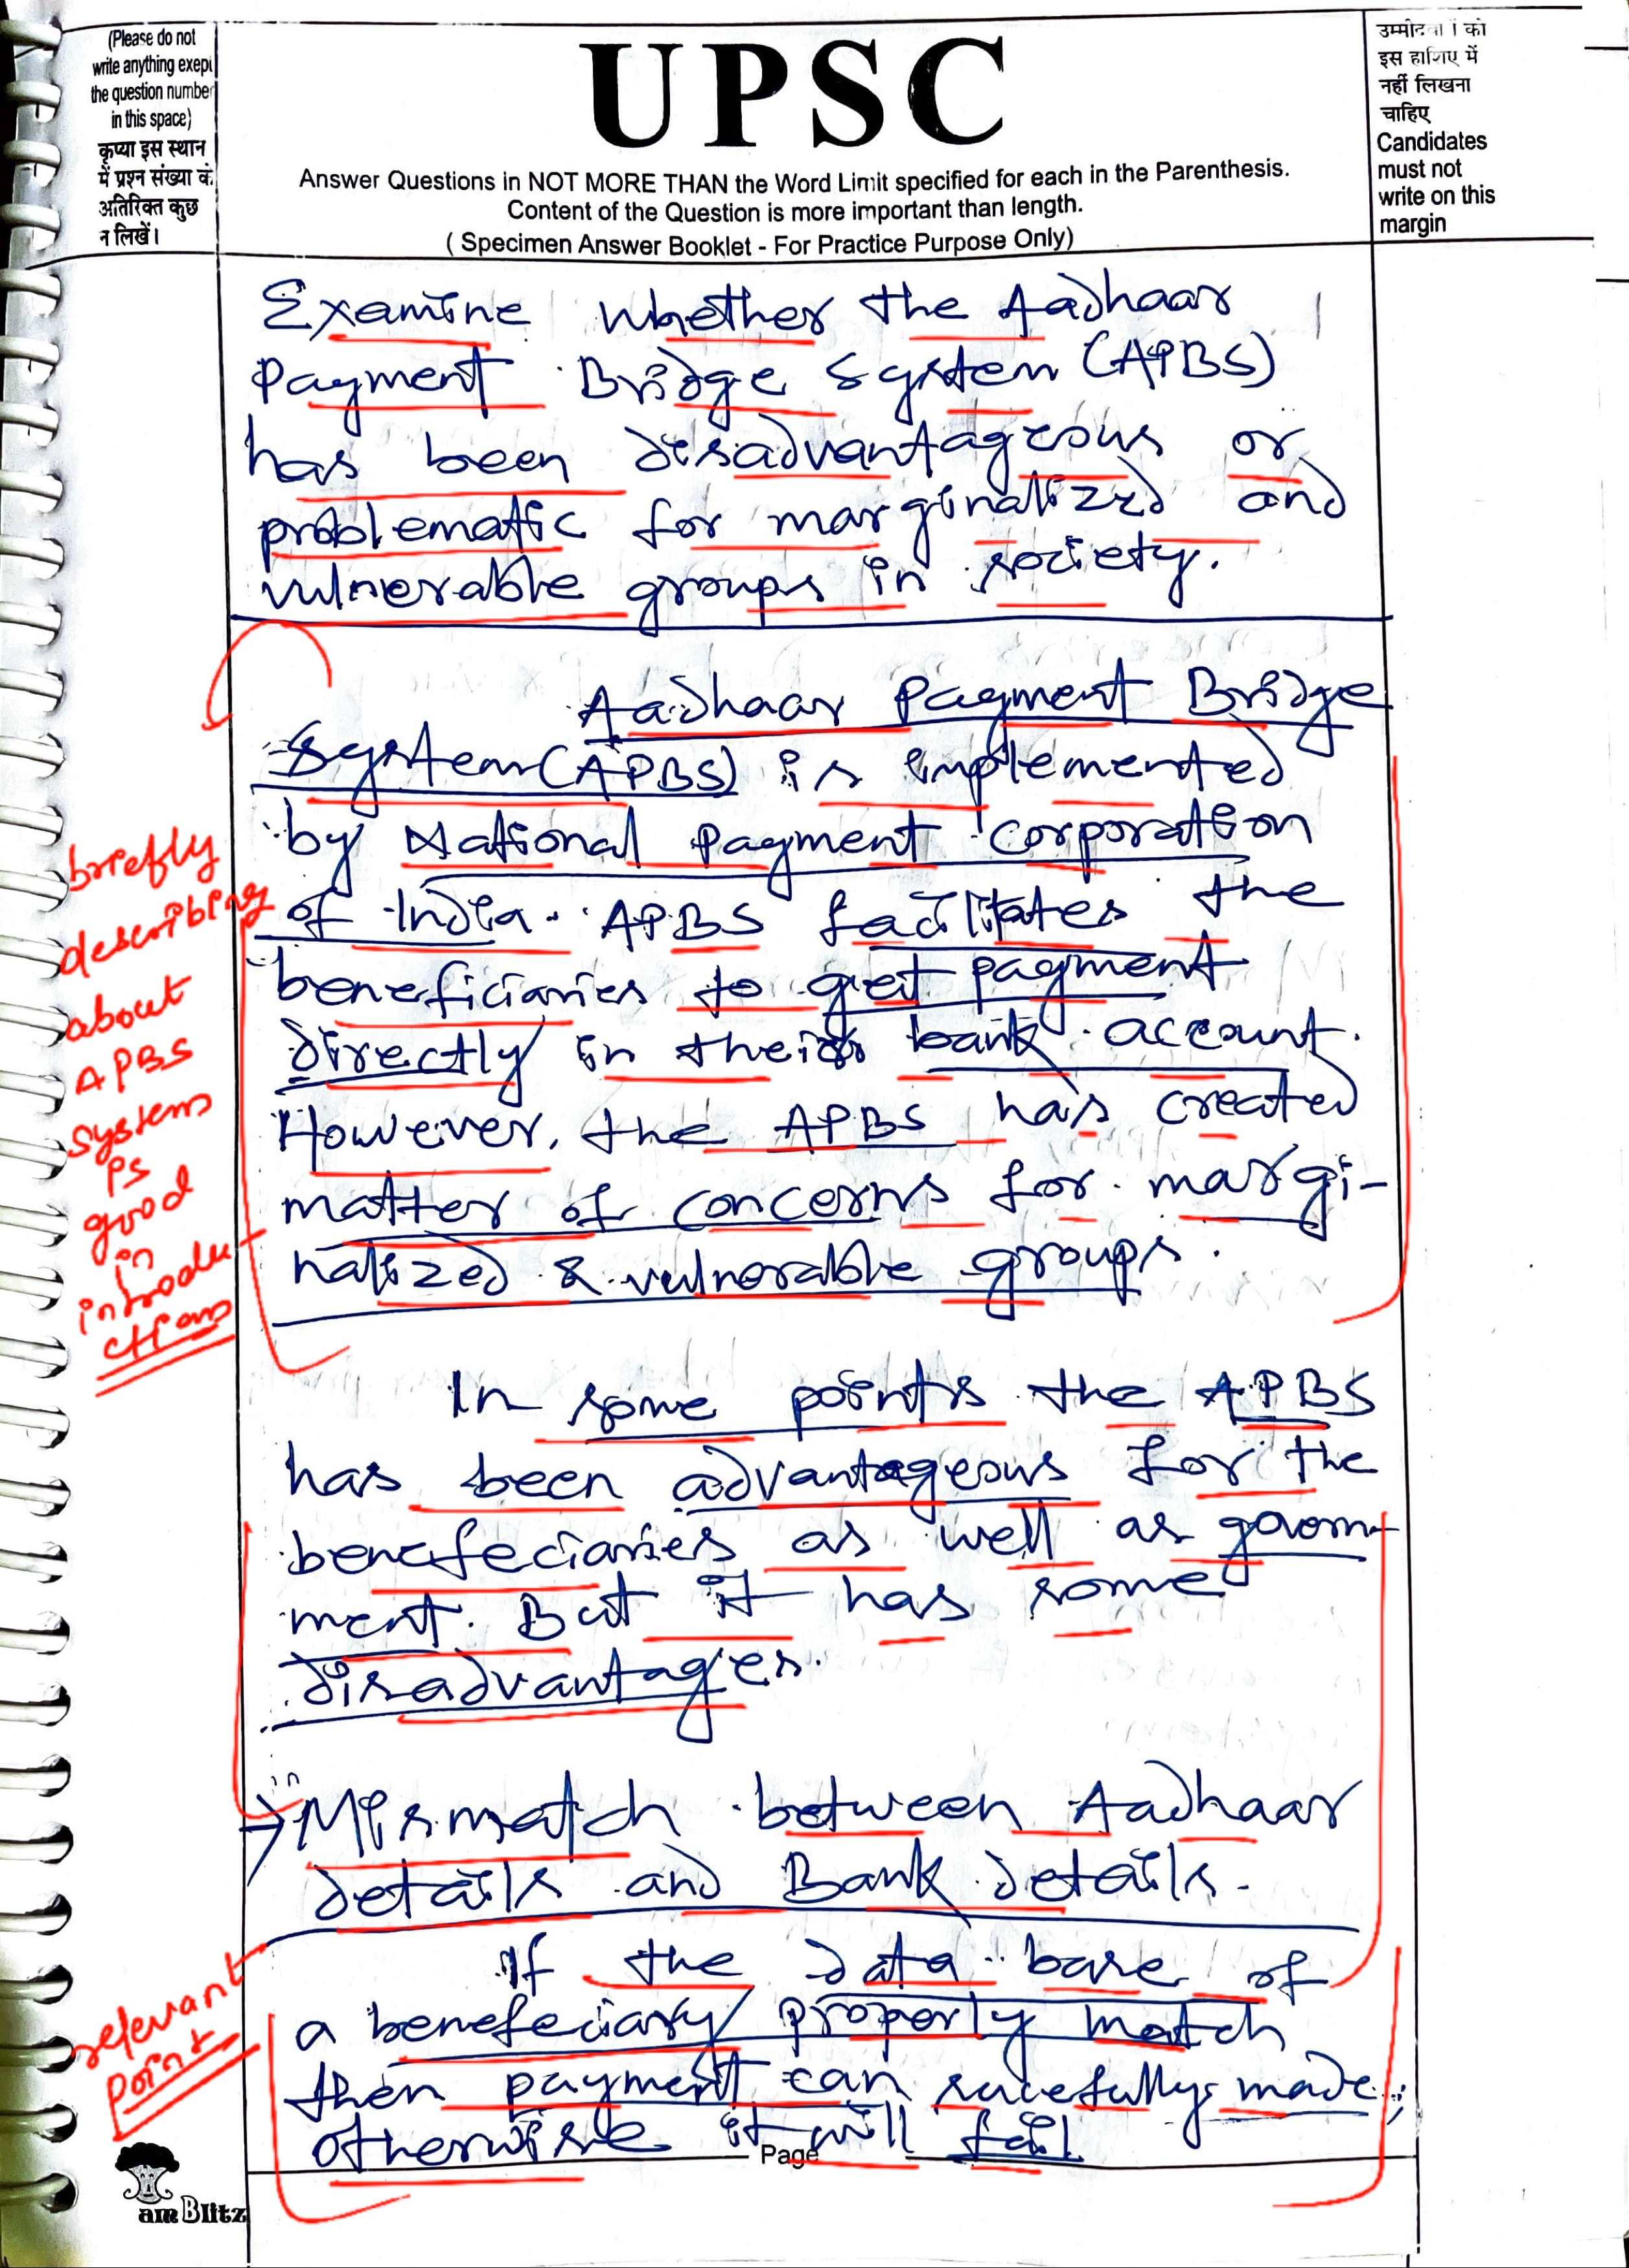 (Please do not
write anything exept
the question number
in this space)
कृप्या इस स्थान
में प्रश्न संख्या के
अतिरिक्त कुछ
न लिखें।
UPSC
Answer Questions in NOT MORE THAN the Word Limit specified for each in the Parenthesis.
Content of the Question is more important than length.
( Specimen Answer Booklet - For Practice Purpose Only)
उम्मीदवारों को
इस हाशिए में
नहीं लिखना
चाहिए
Candidates
must not
write on this
margin
Examine whether the Aadhaar
Payment Bridge System (APBS)
has been disadvantageous or
problematic for marginalized and
vulnerable groups in society.
Aadhaar Payment Bridge
System (APBS) is implemented
by National Payment Corporation
of India. APBS facilitates the
beneficiaries to get payment
directly in their bank account.
However, the APBS has created
matter of concerns for margi-
nalized & vulnerable groups.
briefly
describing
about
APBS
system
is
good
in
introdu
ctions
In some points the APBS
has been advantageous for the
benefeciaries as well as govern-
ment. But it has some
disadvantages.
→ Mismatch between Aadhaar
details and Bank details.
If the data base of
a benefeciary properly match
then payment can sucefully made;
otherwise it will fail
relevant
point
Page
amBlitz